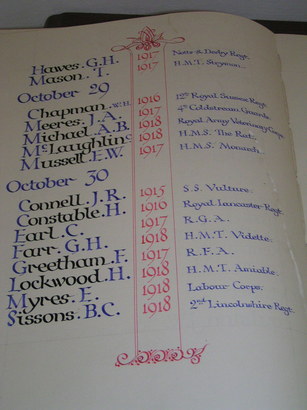 Hawes. G.H. 1917 Notts & Derby Regt.
Mason. T. 1917 H.M.T.
October 29
Chapman. W.H. 1916 12th Royal Sussex Regt.
Meeres. J.A. 1917 4th Coldstream Guards.
Michael. A.B. 1918 Royal Army Veterinary Corps.
McLaughlin. C. 1918 H.M.S.
Mussett. E.W. 1917 H.M.S. Monarch.
October 30
Connell. J.R. 1915 S.S. Vulture.
Constable. H. 1916 Royal Lancaster Regt.
Earl. C. 1917 R.G.A.
Farr. G.H. 1918 H.M.T. Vidette.
Greetham. F. 1917 R.F.A.
Lockwood. H. 1918 H.M.T. Amiable.
Myres. E. 1918 Labour Corps.
Sissons. B.C. 1918 2nd Lincolnshire Regt.